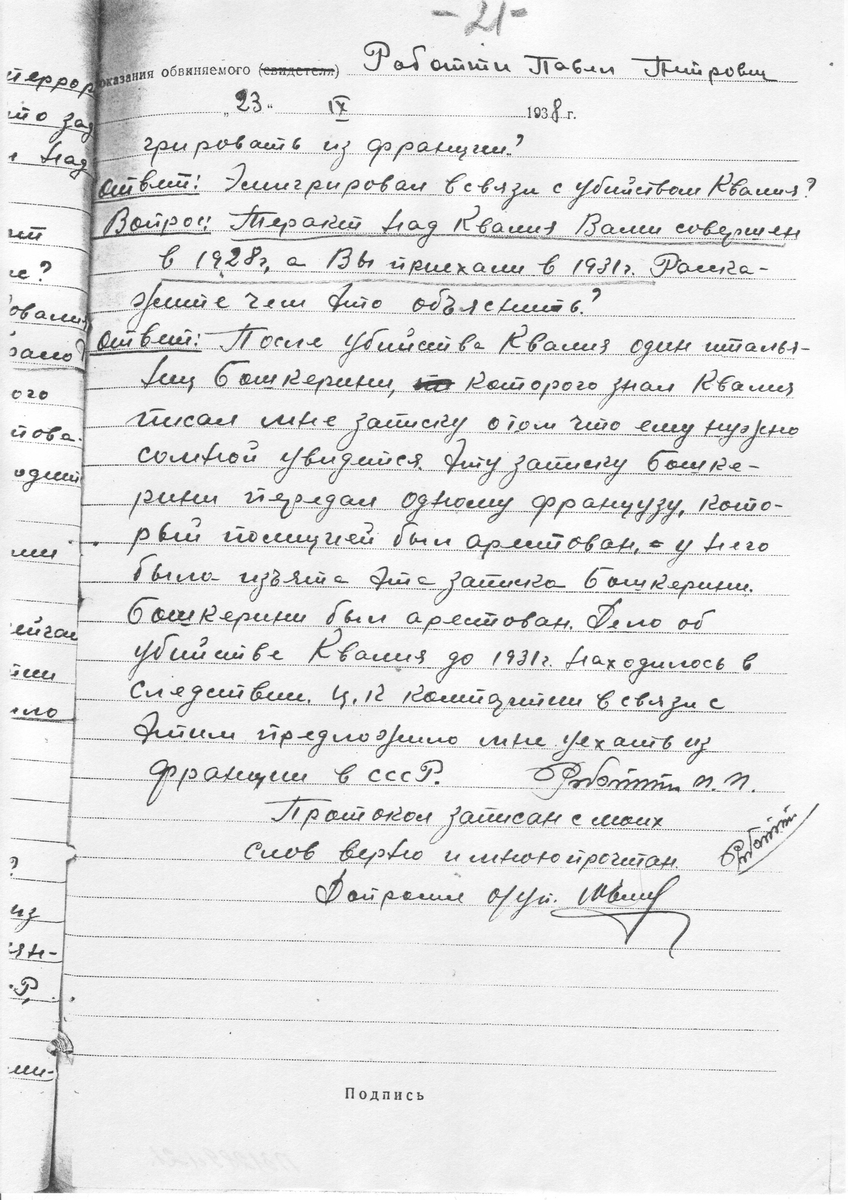 -21-
показания обвиняемого (свидетеля) Роботти Павел Петрович
"23" IX 1938 г.
грировать из франции?
Ответ: Эмигрировал в связи с убийством Квалия?
Вопрос: Теракт над Квалия Вами совершен
в 1928г, а Вы приехали в 1931г. Расска-
жите чем это объяснить?
Ответ: После убийства Квалия один италья-
нец Бошкерини, которого знал Квалия
писал мне записку о том что ему нужно
со мной увидется. Эту записку Бошке-
рини передал одному французу, кото-
рый полицией был арестован, у него
была изъята эта записка Бошкерини.
Бошкерини был арестован. Дело об
убийстве Квалия до 1931г. находилось в
следствии. Ц.К компартии в связи с
этим предложило мне уехать из
франции в СССР. Роботти П.П.
Протокол записан с моих
слов верно и мною прочитан Роботти
Допросил о/уп.
Подпись
террор
что зад
и над
не?
овалия
рамо
ого
това-
один
ми
ейчас
ило
из
ян-
.Р,
ми-